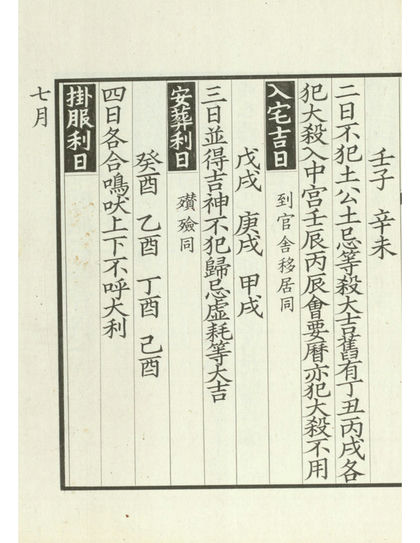 壬子　辛未
二日不犯土公土忌等殺大吉舊有丁丑丙戌各
犯大殺入中宮壬辰丙辰會要曆亦犯大殺不用
入宅吉日　到官舍移居同
戊戌　庚戌　甲戌
三日並得吉神不犯歸忌虛耗等大吉
安葬利日　殯殮同
癸酉　乙酉　丁酉　己酉
四日各合鳴吠上下不呼大利
掛服利日
七月